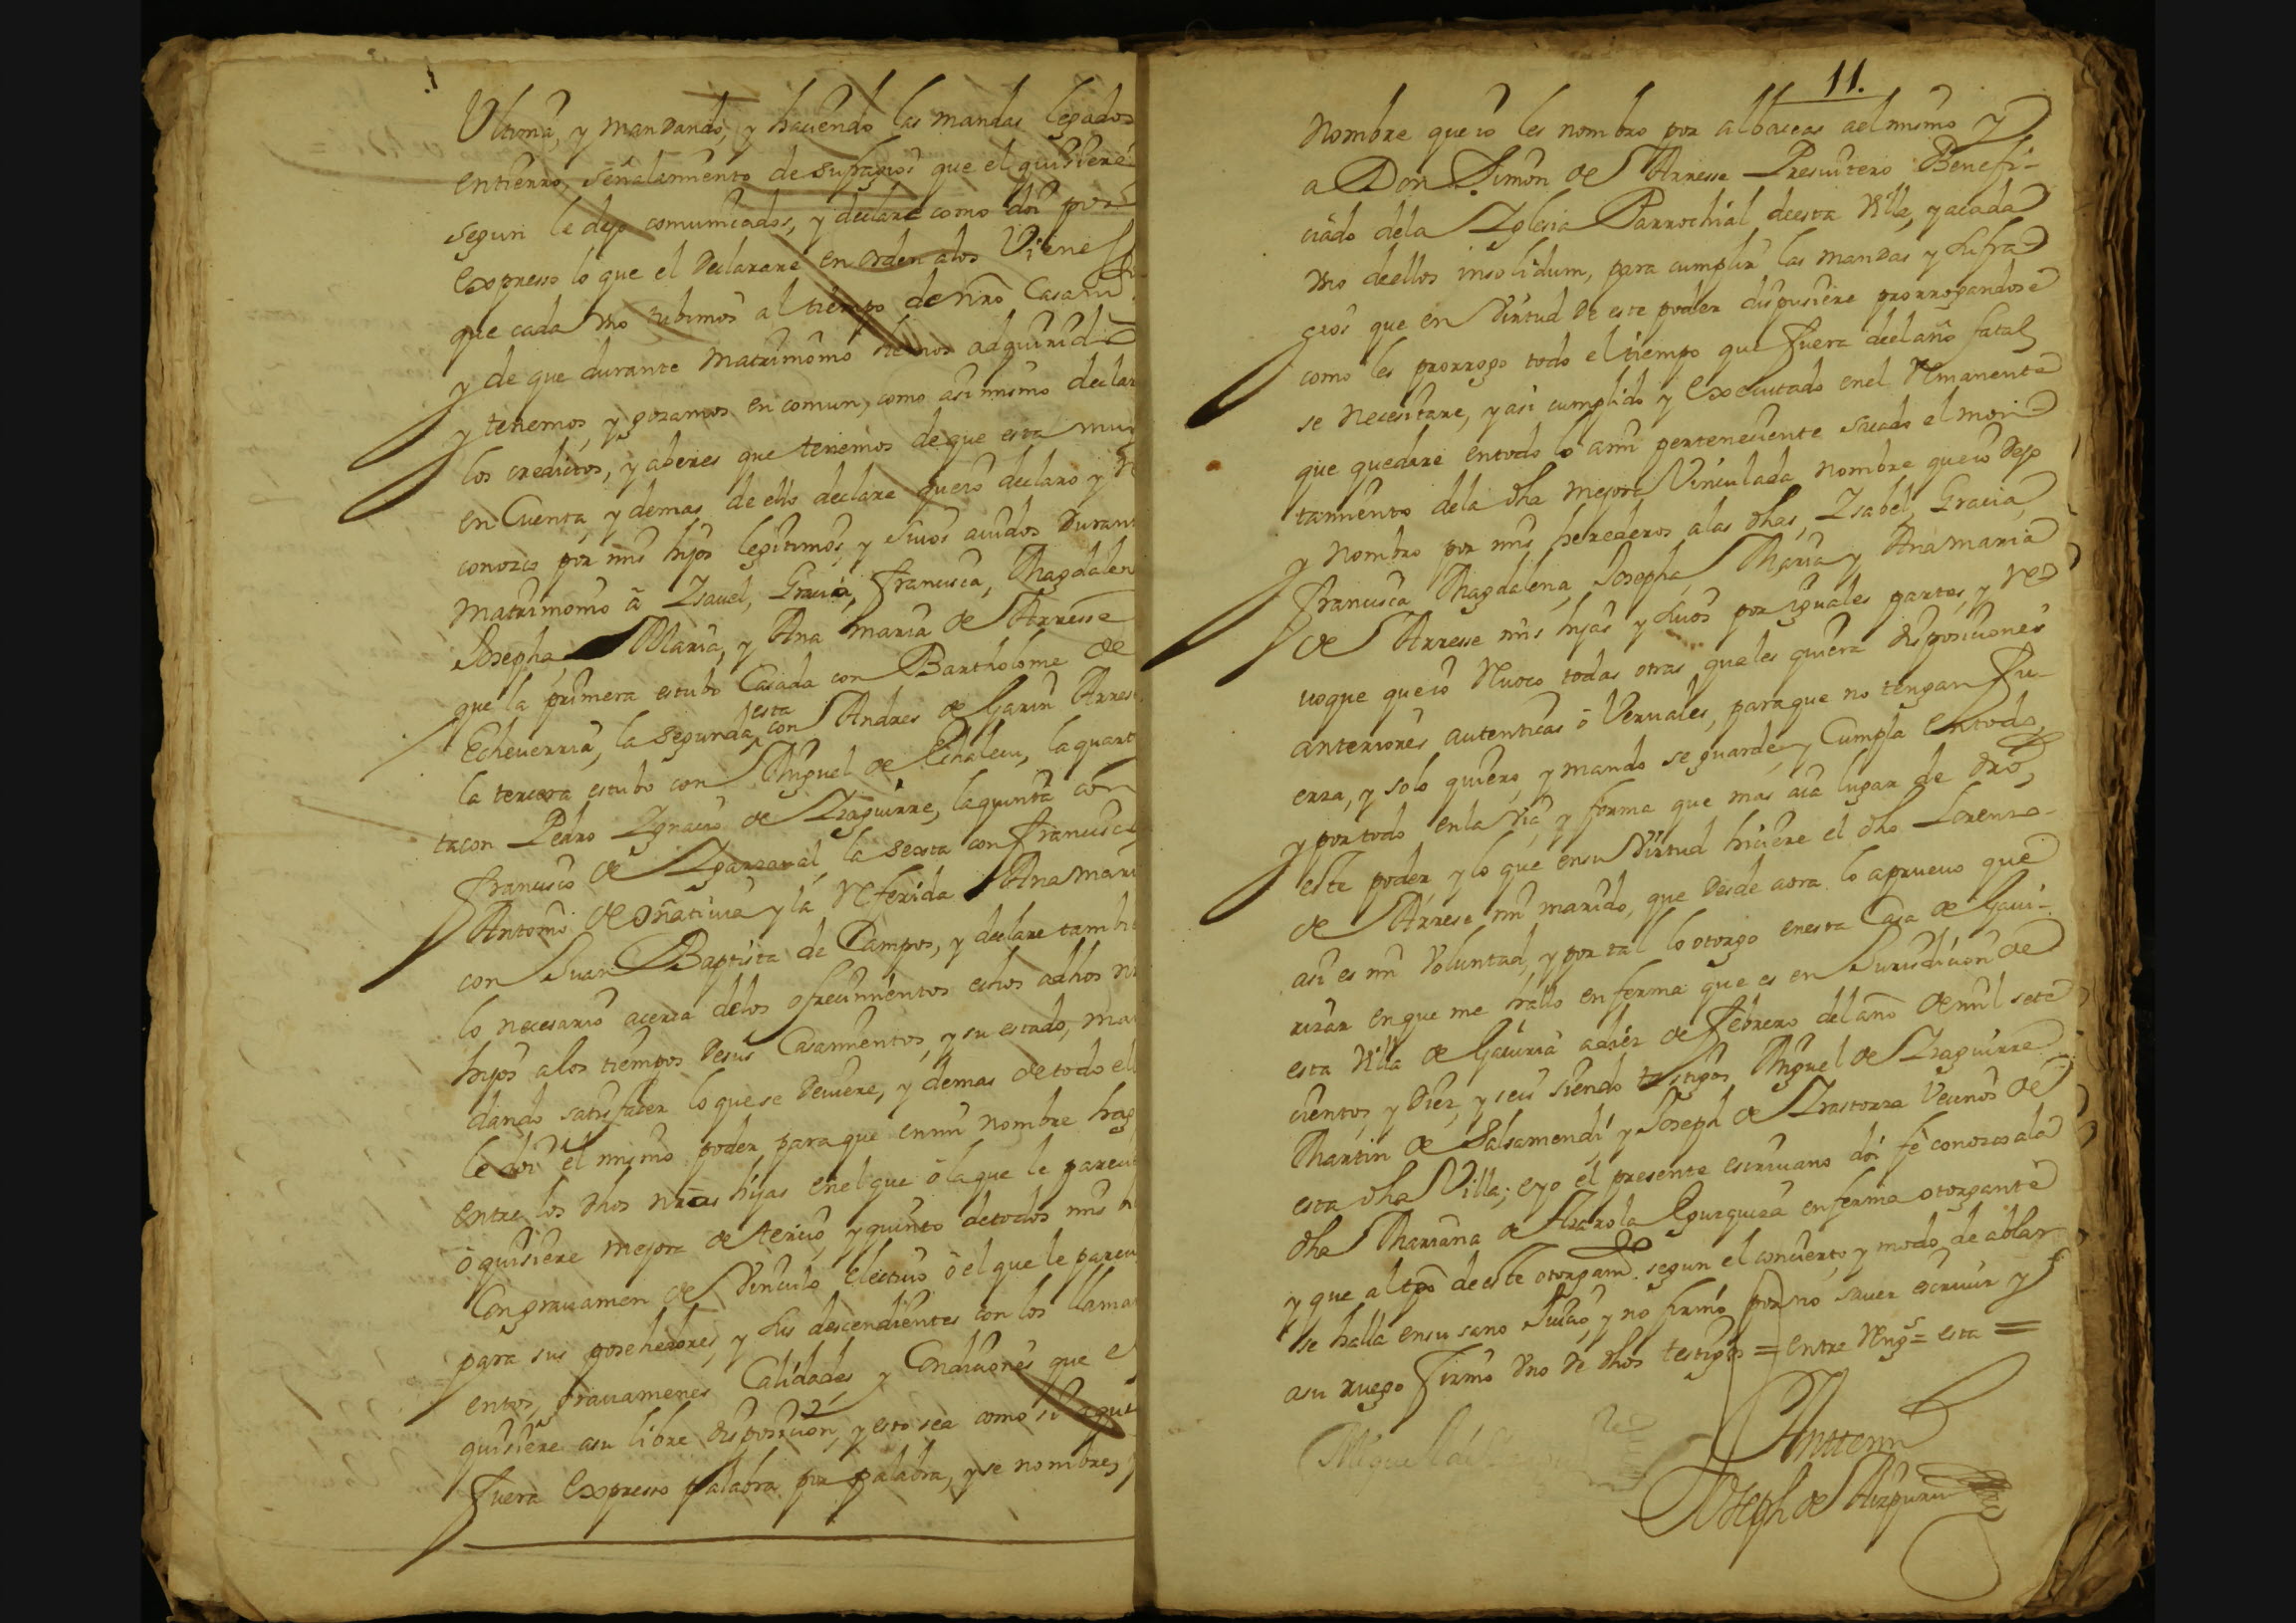 Ultima, y mandando, y haciendo las mandas legados
entierro, señalamiento de sufragios que el quisiere
segun le dejo comunicados, y declare como doi por
Expresso lo que el Declarare en orden a los Vienes
que cada uno tubimos al tiempo de nrõ Casam
y de que durante Matrimonio hemos adquirido
y tenemos, y gozamos en comun, como asi mismo declar
los creditos, y aberes que tenemos de que esta mui
en Cuenta, y demas de ello declare quero declaro y
conozco por mis hijos legitimos, y Suios auidos Duran
Matrimonio â Isauel, Gracia, Francisca, Magdalen
Josepha Maria, y Ana Maria de Arresse
que la primera estubo Casada con Bartholome de
Echeuerria, la Segunda esta con Andres de Garin Arres
la tercera estubo con Miguel de Echaleu, la quart
ta con Pedro Ignacio de Izaguirre, la quinta con
Francisco de Igarzaual, la Sexta con Francisco
Antonio de Oñatiuia y la Referida Ana Mari
con Juan Baptista de Campos, y declare tambi
lo necesario acerca de los ofrecimientos echos a dhos
hijos a los tiempos de sus Casamientos, y su estado, man
dando satisfacer lo que se Deuiere, y demas de todo el
le doi el mismo poder para que en mi nombre hag
entre los dhos nrãs hijas en el que ô la que le pareci
ô quisiere mejora de tercio, y quinto de todos mis
Con grauamen de Vinculo electiuo ô el que le pareci
para sus posehedores, y sus descendientes con los llama
entos, grauamenes Calidades, y Condiciones que el
quisiere a su libre disposicion, y esto sea como si aqui
fuera Expresso palabra por palabra, y se nombre,
11.
Nombre que io les nombro por albaceas a el mismo y
a Don Simon de Arresse Presuitero Benefi-
ciado de la Iglesia Parrochial de esta Villa, y a cada
uno de ellos insolidum, para cumplir las mandas y Sufra
gios que en Virtud de este poder dispusiere prorrogandose
como les prorrogo todo el tiempo que fuera de el año fatal
se necesitare, y asi cumplido y Executado en el Remanente
que quedare en todo lo a mi perteneciente sacado el mon
tamiento de la dha mejora Vinculada nombre que io Dejo
y Nombro por mis herederos a las dhas, Isabel, Gracia,
Francisca Magdalena, Josepha Maria y Ana Maria
de Arresse mis hijas y Suios por iguales partes, y re
uoque que io Reuoco todas otras quales quiera disposiciones
anteriores autenticas ô Veruales, para que no tengan fu-
erza, y solo quiero, y mando se guarde, y Cumpla en todo,
y por todo en la via, y forma que mas aia lugar de drõ,
este poder, y lo que en su Virtud hiciere el dho Lorenzo-
de Arrese mi marido, que Desde aora lo aprueuo que
asi es mi Voluntad, y por tal lo otorgo en esta Casa de Gaui-
rizar en que me hallo enferma que es en Jurisdicion de
esta Villa de Gauiria a diez de Febrero del año de mil sete
cientos, y Diez, y seis siendo testigos Miguel de Izaguirre
Martin de Salsamendi, y Joseph de Irastorza Vecinos de
esta dha Villa; e yo el presente escriuano doi fe conozco a la
dha Mariana de Azarola Egurquiza enferma otorgante
y que al tpõ de este otorgamto segun el concierto, y modo de ablar
se halla en su sano Juicio, y no firmo por no sauer escriuir y
a su ruego Firmo Uno de dhos testigos = entre Rengs = esta =
Miguel de
Ante mi
Joseph de Aizpuru